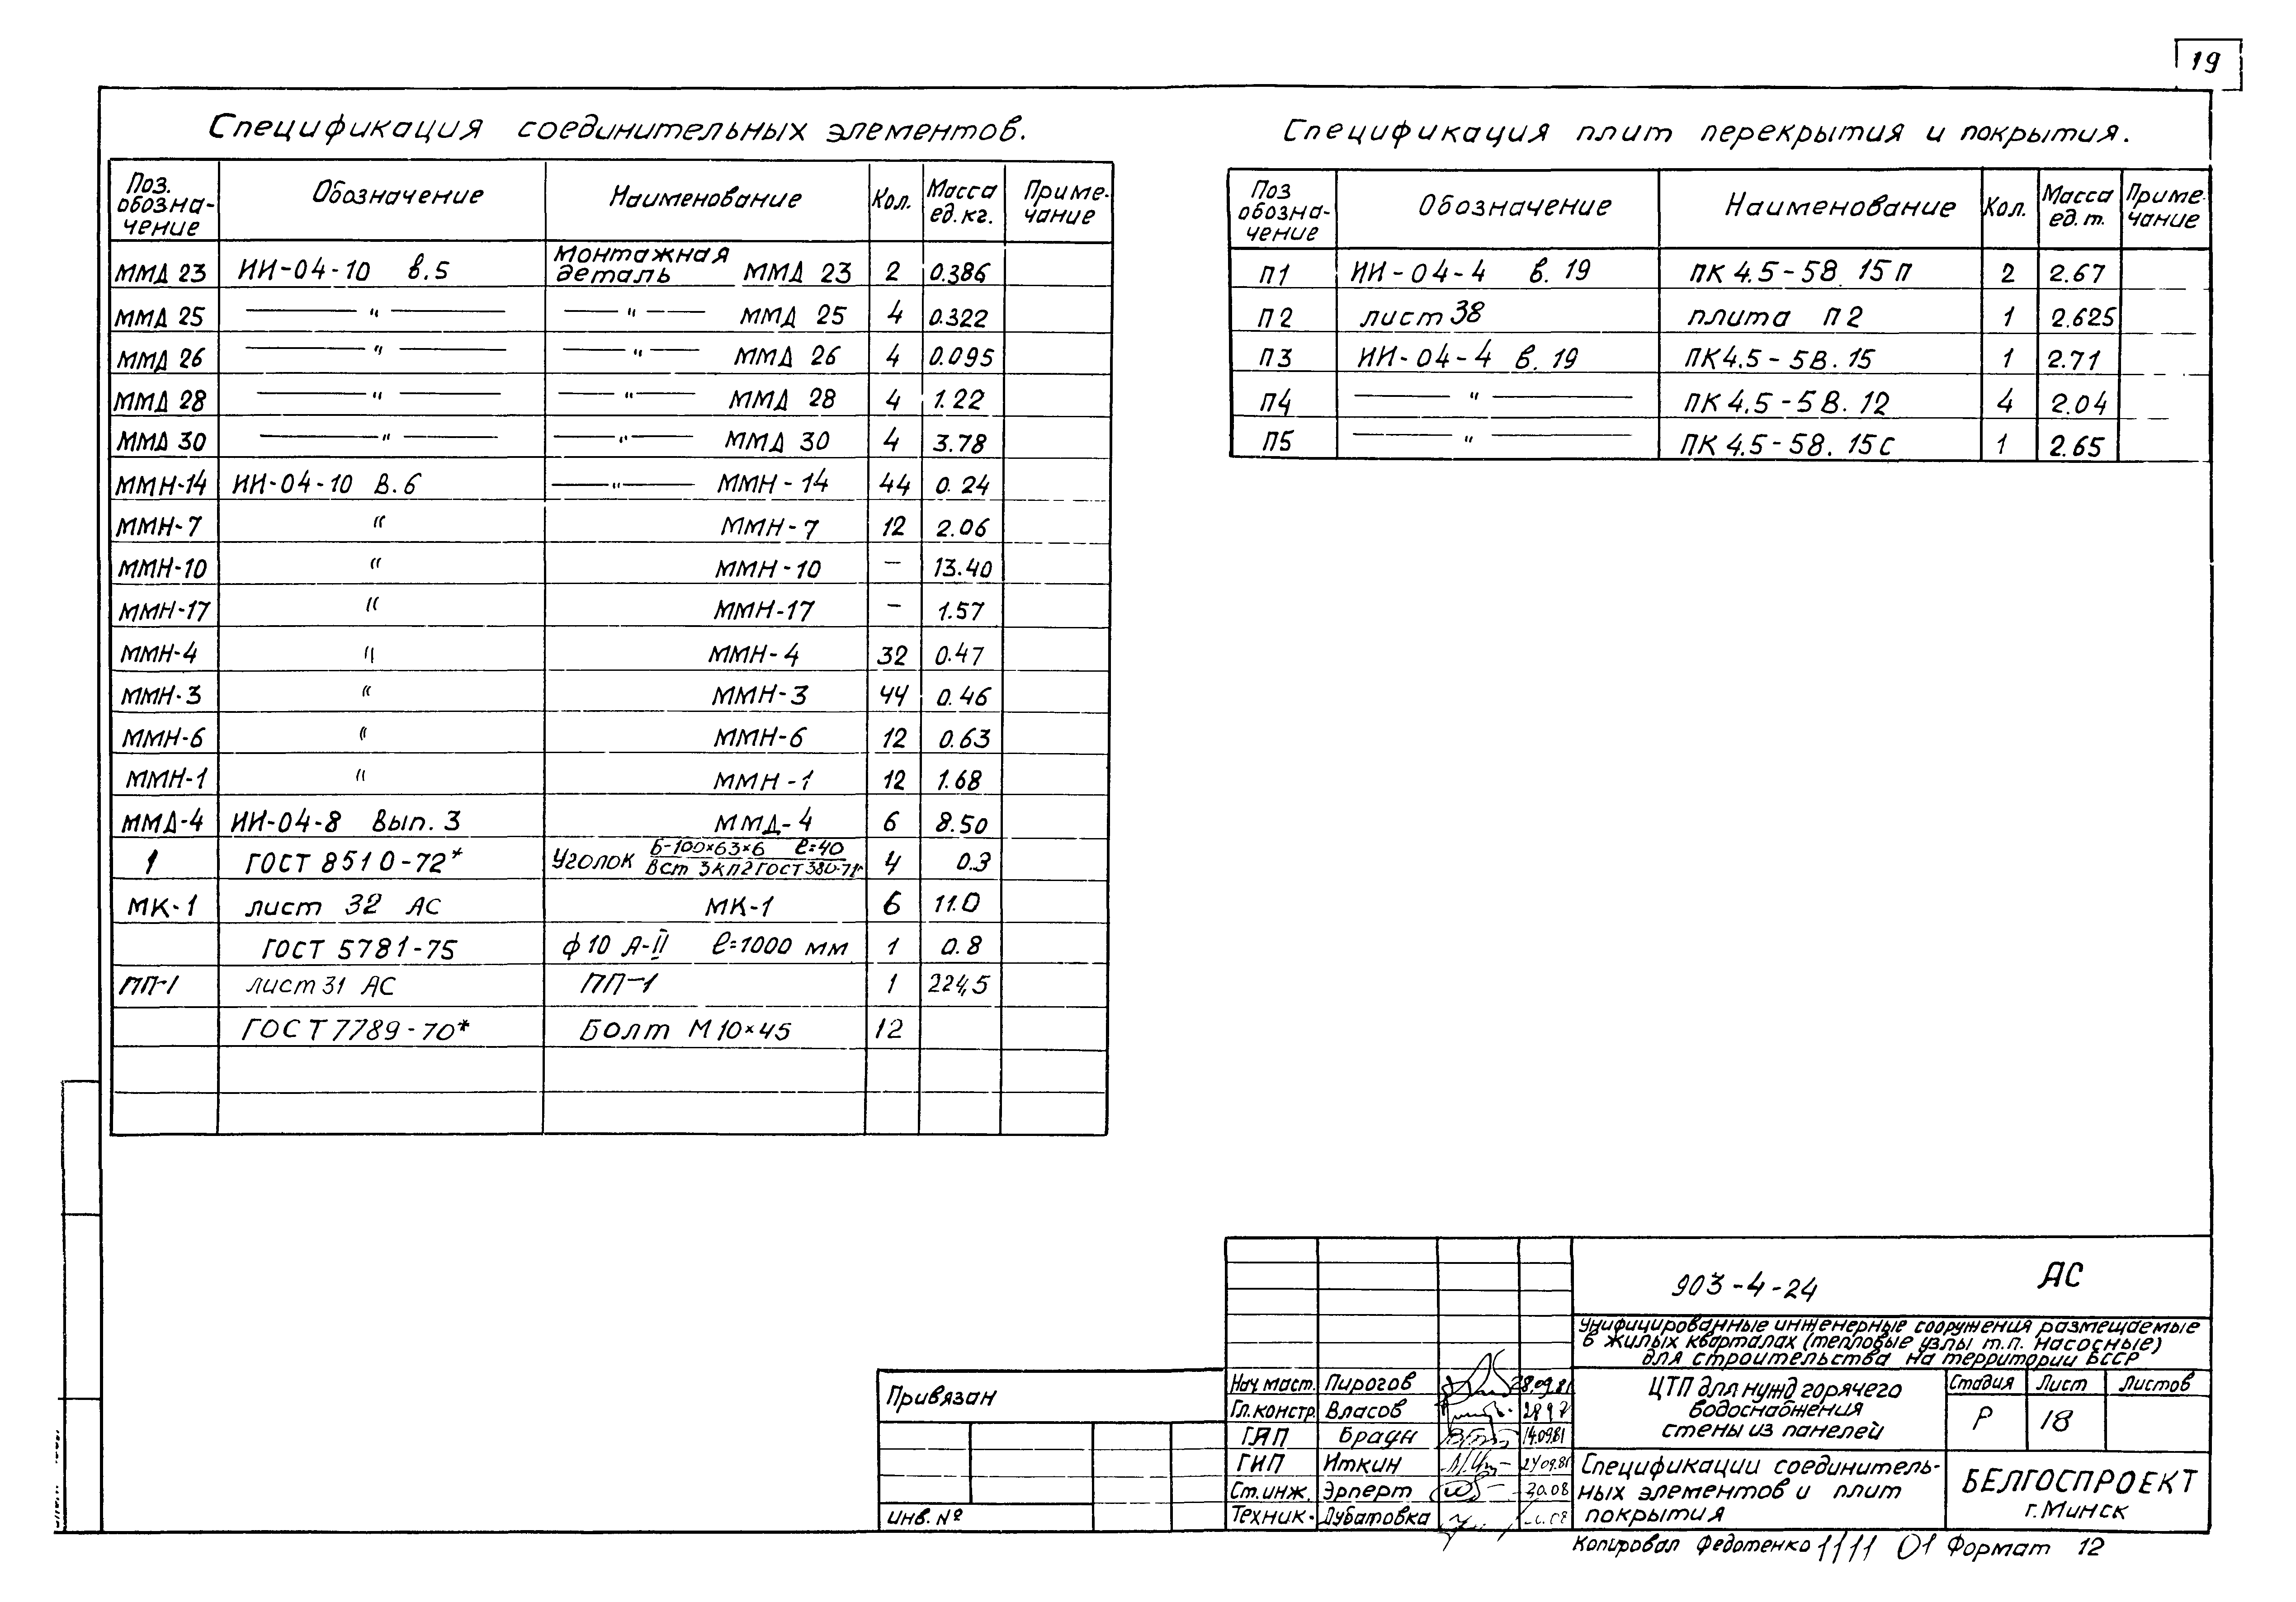 19
Спецификация соединительных элементов.
Поз. обозна-чение Обозначение Наименование Кол. Масса ед. кг. Приме-чание
ММД 23 ИИ-04-10 в.5 Монтажная деталь ММД 23 2 0.386
ММД 25 —"— —"— ММД 25 4 0.322
ММД 26 —"— —"— ММД 26 4 0.095
ММД 28 —"— —"— ММД 28 4 1.22
ММД 30 —"— —"— ММД 30 4 3.78
ММН-14 ИИ-04-10 в.6 —"— ММН-14 44 0.24
ММН-7 " ММН-7 12 2.06
ММН-10 " ММН-10 — 13.40
ММН-17 " ММН-17 — 1.57
ММН-4 " ММН-4 32 0.47
ММН-3 " ММН-3 44 0.46
ММН-6 " ММН-6 12 0.63
ММН-1 " ММН-1 12 1.68
ММД-4 ИИ-04-8 Вып. 3 ММД-4 6 8.50
1 ГОСТ 8510-72* Уголок Б-100×63×6 ℓ=40 4 0.3
Вст 3кп2 ГОСТ 380-71*
МК-1 лист 32 АС МК-1 6 11.0
ГОСТ 5781-75 ф10 А-II ℓ=1000 мм 1 0.8
ПП-1 лист 31 АС ПП-1 1 224,5
ГОСТ 7789-70* Болт М10×45 12
Спецификация плит перекрытия и покрытия.
Поз обозна-чение Обозначение Наименование Кол. Масса ед. т. Приме-чание
П1 ИИ-04-4 в. 19 ПК 4.5-58. 15 П 2 2.67
П2 лист 38 плита П2 1 2.625
П3 ИИ-04-4 в. 19 ПК 4.5-58. 15 1 2.71
П4 —"— ПК 4.5-58. 12 4 2.04
П5 —"— ПК 4.5-58. 15с 1 2.65
903-4-24 АС
Унифицированные инженерные сооружения размещаемые
в жилых кварталах (тепловые узлы т.п. насосные)
для строительства на территории БССР
Привязан
Инв. №
Нач маст. Пирогов 28.09.81
Гл. констр. Власов
ГАП Браун 14.09.81
ГИП Иткин 24.09.81
Ст. инж. Эрперт 20.08
Техник Дубатовка
ЦТП для нужд горячего
водоснабжения
стены из панелей
Стадия Лист Листов
Р 18
Спецификации соединитель-
ных элементов и плит
покрытия
БЕЛГОСПРОЕКТ
г. Минск
Копировал Федотенко 1111 01 Формат 12